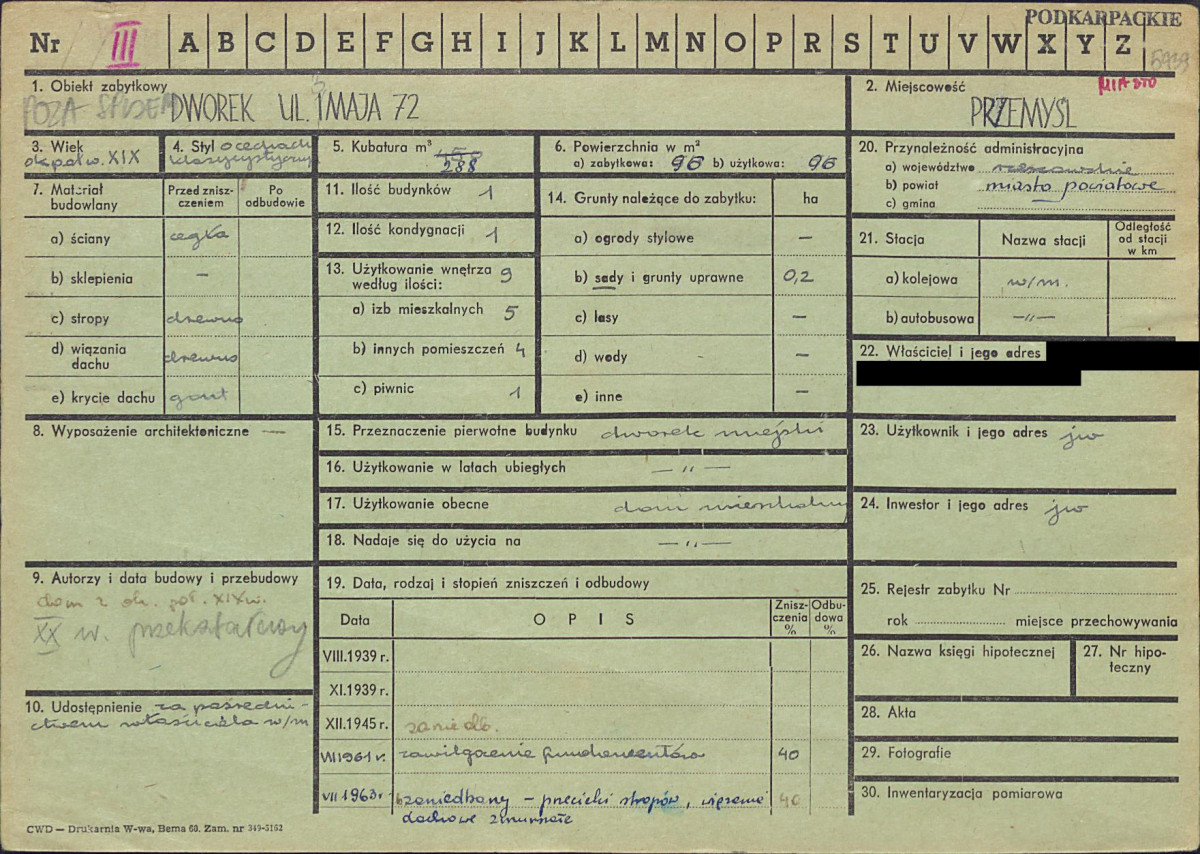 PODKARPACKIE
Nr III A B C D E F G H I J K L M N O P R S T U V W X Y Z
5939
1. Obiekt zabytkowy
POZA SPISEM DWOREK UL. 1 MAJA 72
3
2. Miejscowość
MIASTO
PRZEMYŚL
3. Wiek
ok. poł. w. XIX
4. Styl o cechach
klasycystycznych
5. Kubatura m³ 450
288
6. Powierzchnia w m²
a) zabytkowa: 96 b) użytkowa: 96
20. Przynależność administracyjna
a) województwo rzeszowskie
b) powiat miasto powiatowe
c) gmina
7. Materiał budowlany
Przed zniszczeniem
Po odbudowie
a) ściany cegła
b) sklepienia —
c) stropy drewno
d) wiązania dachu drewno
e) krycie dachu gont
11. Ilość budynków 1
12. Ilość kondygnacji 1
13. Użytkowanie wnętrza według ilości: 9
a) izb mieszkalnych 5
b) innych pomieszczeń 4
c) piwnic 1
14. Grunty należące do zabytku: ha
a) ogrody stylowe —
b) sady i grunty uprawne 0,2
c) lasy —
d) wody —
e) inne —
21. Stacja
Nazwa stacji
Odległość od stacji w km
a) kolejowa w/m.
b) autobusowa —„—
22. Właściciel i jego adres
8. Wyposażenie architektoniczne —
15. Przeznaczenie pierwotne budynku dworek miejski
16. Użytkowanie w latach ubiegłych —„—
17. Użytkowanie obecne dom mieszkalny
18. Nadaje się do użycia na —„—
23. Użytkownik i jego adres jw
24. Inwestor i jego adres jw
9. Autorzy i data budowy i przebudowy
dom z ok. poł. XIX w.
XX w. przekształcony
10. Udostępnienie za pośredni-
ctwem właściciela w/m
19. Data, rodzaj i stopień zniszczeń i odbudowy
Data
OPIS
Zniszczenia %
Odbudowa %
VIII.1939 r.
XI.1939 r.
XII.1945 r. zaniedb.
VII 1961 r. zawilgocenie fundamentów 40
VII 1963 r. zaniedbany – przecieki stropów, więzania 40
dachowe zmurszałe
25. Rejestr zabytku Nr
rok miejsce przechowywania
26. Nazwa księgi hipotecznej
27. Nr hipoteczny
28. Akta
29. Fotografie
30. Inwentaryzacja pomiarowa
CWD — Drukarnia W-wa, Bema 60. Zam. nr 349-5162